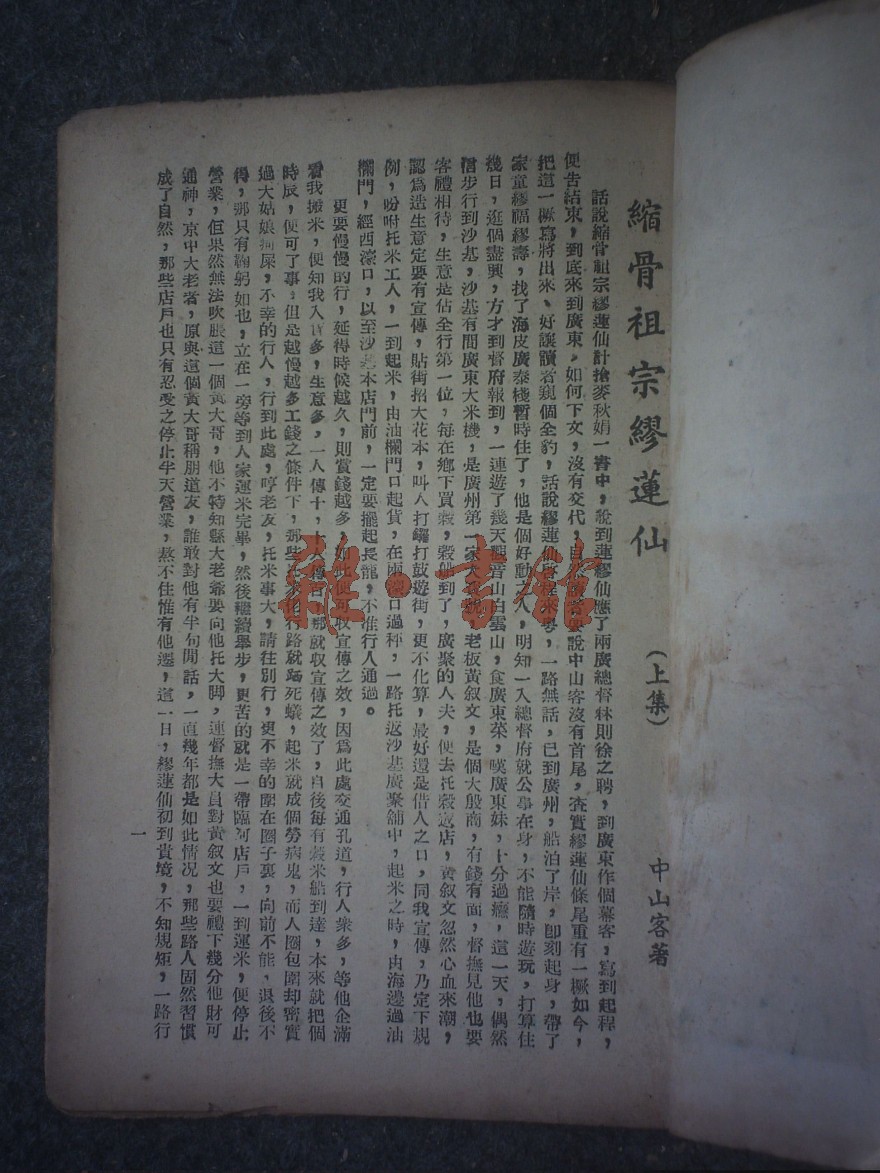 縮骨祖宗繆蓮仙
(上集)
中山客著
話說縮骨祖宗繆蓮仙計搶麥秋娟一書中，說到蓮繆仙應了兩廣總督林則徐之聘，到廣東作個幕客，寫到起程，
便告結束，到底來到廣東，如何下文，沒有交代，自然讀者要說中山客沒有首尾，查實繆蓮仙條尾重有一橛如今，
把這一橛寫將出來、好讓讀者窺個全豹，話說繆蓮仙啓程來粵，一路無話，已到廣州，船泊了岸，卽刻起身，帶了
家童繆福繆壽，找了海皮廣泰棧暫時住了，他是個好動之人，明知一入總督府就公事在身，不能隨時遊玩，打算住
幾日，逛個盡興，方才到督府報到，一連遊了幾天觀音山白雲山，食廣東菜，嘆廣東妹，十分過癮，這一天，偶然
信步行到沙基，沙基有間廣東大米機，是廣州第一家大，老板黃叙文，是個大殷商，有錢有面，督撫見他也要
客禮相待，生意是佔全行第一位，每在鄉下買穀，穀船到了，廣聚的人夫，便去托穀返店，黃叙文忽然心血來潮，
認爲造生意定要有宣傳，貼街招大花本，叫人打鑼打鼓遊街，更不化算，最好還是借人之口，同我宣傳，乃定下規
例，吩咐托米工人，一到起米，由油欄門口起貨，在兩 口過秤，一路托返沙基廣聚舖中，起米之時，由海邊過油
欄門，經西濠口，以至沙基本店門前，一定要擺起長龍，不准行人通過。
更要慢慢的行，延得時候越久，則賞錢越多，如此便可收宣傳之效，因爲此處交通孔道，行人衆多，等他企滿
看我搬米，便知我入貨多，生意多，一人傳十，十人傳百，那就收宣傳之效了，自後每有穀米船到達，本來就把個
時辰，便可了事，但是越慢越多工錢之條件下，那些托米佬行路就踊死蟻，起米就成個勞病鬼，而人圈包圍却密實
過大姑娘 屎，不幸的行人，行到此處，哼老友，托米事大，請往別行，更不幸的圍在圈子裏，向前不能，退後不
得，那只有鞠躬如也，立在一旁等到人家運米完畢，然後繼續舉步，更苦的就是一帶臨河店戶，一到運米，便停止
營業，但果然無法吹脹這一個黃大哥，他不特知縣大老爺要向他托大脚，連督撫大員對黃叙文也要禮下幾分他財可
通神，京中大老者，原與這個黃大哥稱朋道友，誰敢對他有半句閒話，一直幾年都是如此情况，那些路人固然習慣
成了自然，那些店戶也只有忍受之停止半天營業，熬不住惟有他遷，這一日，繆蓮仙初到貴境，不知規矩，一路行
一
雅·書館